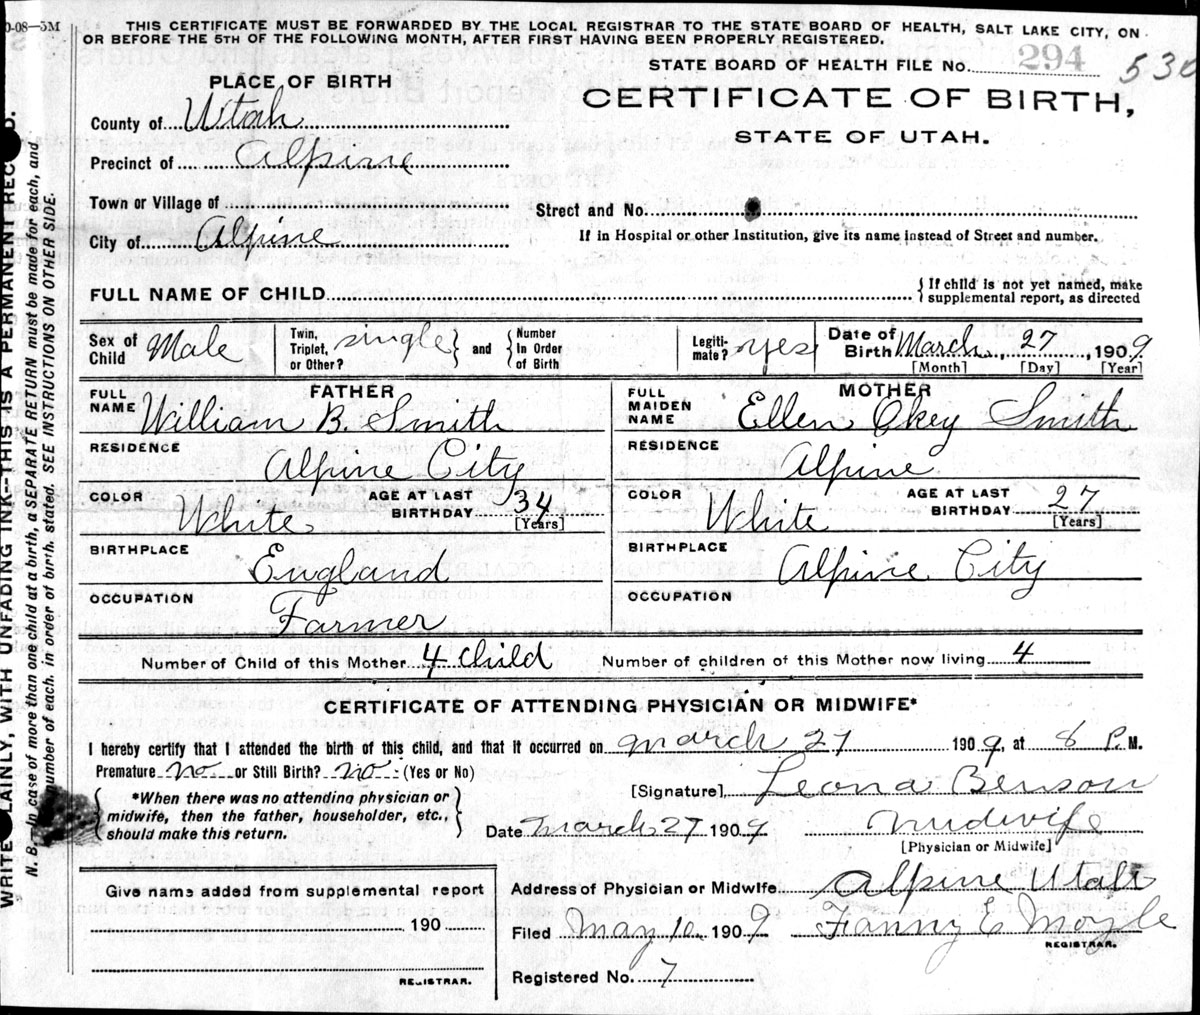 0-08—5M
THIS CERTIFICATE MUST BE FORWARDED BY THE LOCAL REGISTRAR TO THE STATE BOARD OF HEALTH, SALT LAKE CITY, ON
OR BEFORE THE 5TH OF THE FOLLOWING MONTH, AFTER FIRST HAVING BEEN PROPERLY REGISTERED.
STATE BOARD OF HEALTH FILE No. 294 530
PLACE OF BIRTH
CERTIFICATE OF BIRTH,
STATE OF UTAH.
County of Utah
Precinct of Alpine
Town or Village of
Street and No.
City of Alpine
If in Hospital or other Institution, give its name instead of Street and number.
FULL NAME OF CHILD
If child is not yet named, make
supplemental report, as directed
Sex of Child Male
Twin, Triplet, or Other? single and Number In Order of Birth
Legiti-mate? yes
Date of Birth March 27, 1909
[Month] [Day] [Year]
FATHER
FULL NAME William B. Smith
RESIDENCE Alpine City
COLOR White AGE AT LAST BIRTHDAY 34 [Years]
BIRTHPLACE England
OCCUPATION Farmer
MOTHER
FULL MAIDEN NAME Ellen Okey Smith
RESIDENCE Alpine
COLOR White AGE AT LAST BIRTHDAY 27 [Years]
BIRTHPLACE Alpine City
OCCUPATION
Number of Child of this Mother 4 Child Number of children of this Mother now living 4
CERTIFICATE OF ATTENDING PHYSICIAN OR MIDWIFE*
I hereby certify that I attended the birth of this child, and that it occurred on march 27 1909, at 8 P.M.
Premature no or Still Birth? no (Yes or No)
[Signature] Leona Benson
*When there was no attending physician or
midwife, then the father, householder, etc.,
should make this return.
Date march 27 1909 midwife
[Physician or Midwife]
Give name added from supplemental report
190
REGISTRAR.
Address of Physician or Midwife Alpine Utah
Filed May 10, 1909 Fanny E Moyle
REGISTRAR.
Registered No. 7
N. B.—In case of more than one child at a birth, a SEPARATE RETURN must be made for each, and
number of each, in order of birth, stated. SEE INSTRUCTIONS ON OTHER SIDE.